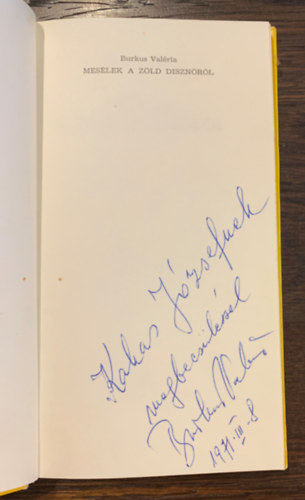 Burkus Valéria
MESÉLEK A ZÖLD DISZNÓRÓL
Kakas Józsefnek
megbecsüléssel
Burkus Valéria
1971-III-8